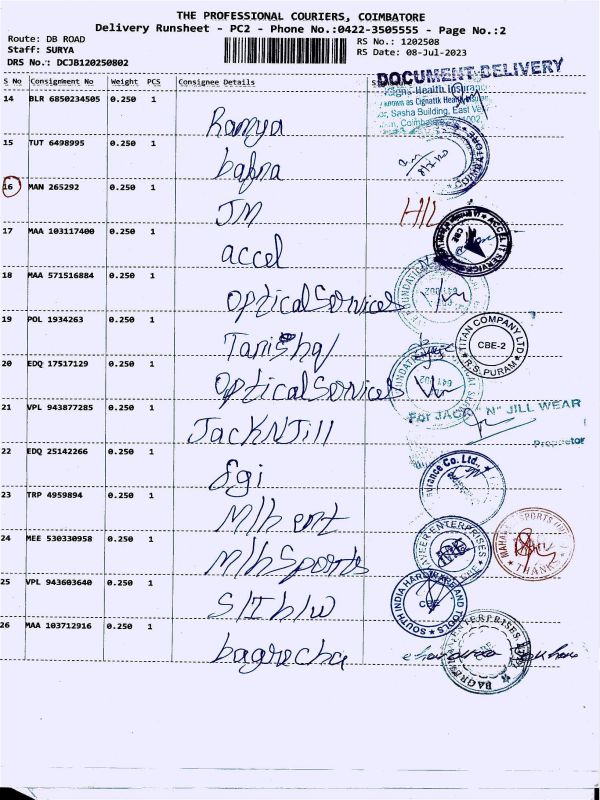 THE PROFESSIONAL COURIERS, COIMBATORE
Delivery Runsheet - PC2 - Phone No.:0422-3505555 - Page No.:2
Route: DB ROAD
RS No.: 1202508
Staff: SURYA
RS Date: 08-Jul-2023
DRS No.: DCJB120250802
S No Consignment No Weight PCS Consignee Details
DOCUMENT DELIVERY
14 BLR 6850234505 0.250 1 Ramya
Sasha Building, East
15 TUT 6498995 0.250 1 bafna
16 MAN 265292 0.250 1 JM
17 MAA 103117400 0.250 1 accel
ACCEL IT SERVICES CBE
18 MAA 571516884 0.250 1 Optical Services
641 002
19 POL 1934263 0.250 1 Tanishq
TITAN COMPANY LTD CBE-2 R.S. PURAM
20 EDQ 17517129 0.250 1 Optical Services
641 002
21 VPL 943877285 0.250 1 Jack N Jill
For JACK "N" JILL WEAR
Proprietor
22 EDQ 25142266 0.250 1 sgi
Co. Ltd.,
23 TRP 4959894 0.250 1 M/h ent
24 MEE 530330958 0.250 1 M/h Sports
ENTERPRISES
SPORTS THANKS
25 VPL 943603640 0.250 1 S/I h/w
SOUTH INDIA HARDWARE AND TOOLS CBE
26 MAA 103712916 0.250 1 bagrecha
ENTERPRISES